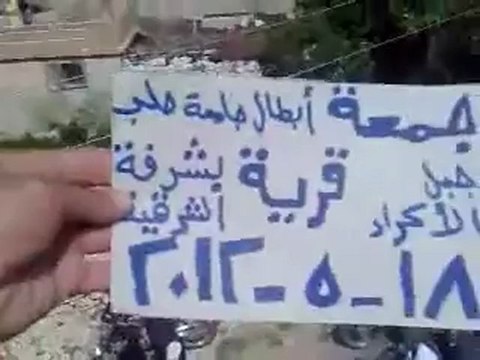 جمعة أبطال جامعة حلب
جبل الأكراد قرية بشرفة الشرقية
١٨-٥-٢٠١٢